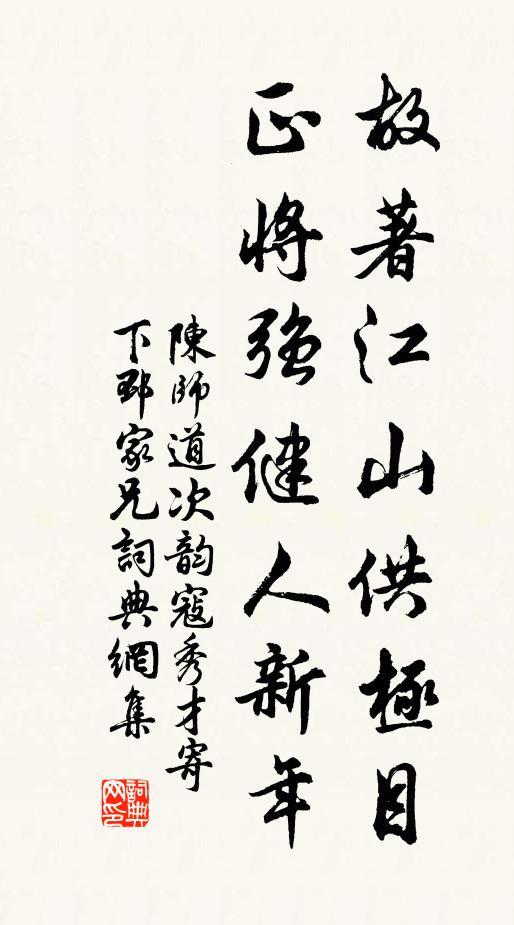 故著江山供極目
正將強健人新年
陳師道次韵寇秀才寄
下邳家兄詞典網集
詞典
网印